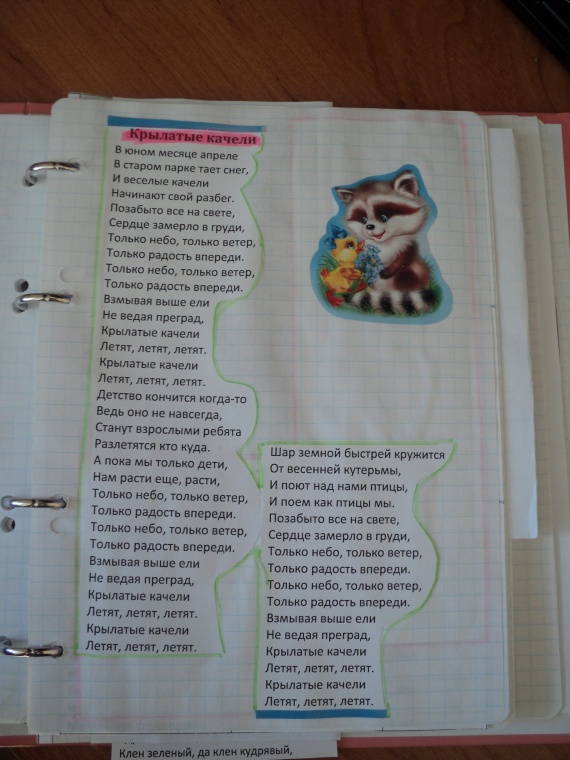 Крылатые качели
В юном месяце апреле
В старом парке тает снег,
И веселые качели
Начинают свой разбег.
Позабыто все на свете,
Сердце замерло в груди,
Только небо, только ветер,
Только радость впереди.
Только небо, только ветер,
Только радость впереди.
Взмывая выше ели
Не ведая преград,
Крылатые качели
Летят, летят, летят.
Крылатые качели
Летят, летят, летят.
Детство кончится когда-то
Ведь оно не навсегда,
Станут взрослыми ребята
Разлетятся кто куда.
А пока мы только дети,
Нам расти еще, расти,
Только небо, только ветер,
Только радость впереди.
Только небо, только ветер,
Только радость впереди.
Взмывая выше ели
Не ведая преград,
Крылатые качели
Летят, летят, летят.
Крылатые качели
Летят, летят, летят.
Шар земной быстрей кружится
От весенней кутерьмы,
И поют над нами птицы,
И поем как птицы мы.
Позабыто все на свете,
Сердце замерло в груди,
Только небо, только ветер,
Только радость впереди.
Только небо, только ветер,
Только радость впереди.
Взмывая выше ели
Не ведая преград,
Крылатые качели
Летят, летят, летят.
Крылатые качели
Летят, летят, летят.
Клен зеленый, да клен кудрявый,